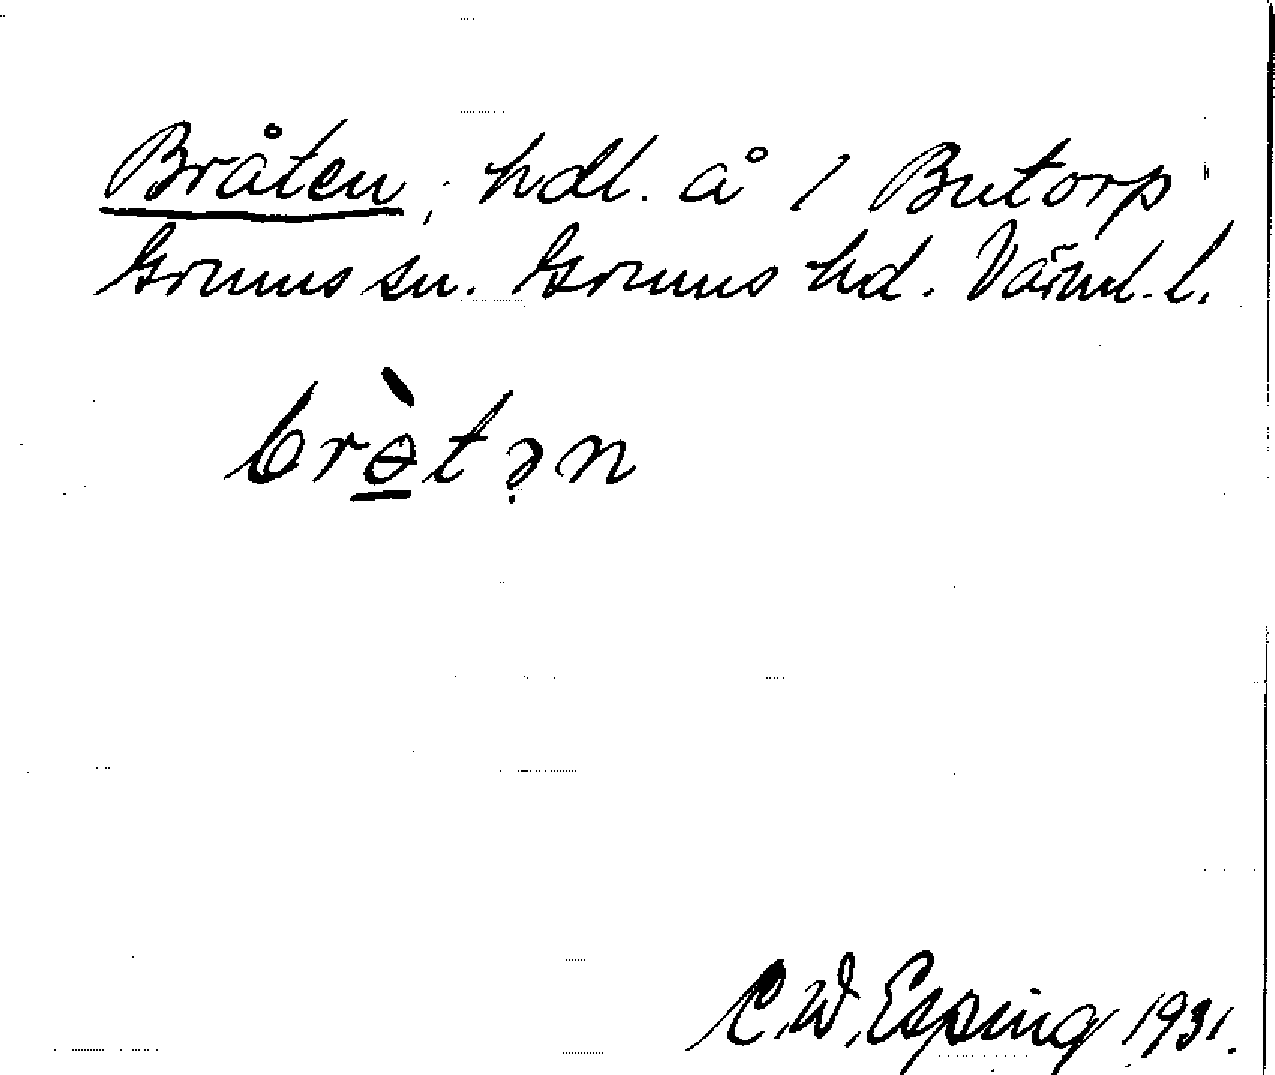 Bråten, hdl. å 1 Butorp
Grums sn. Grums hd. Värml. l.
brɵ̀tə̣n
C.W. Esping 1931.